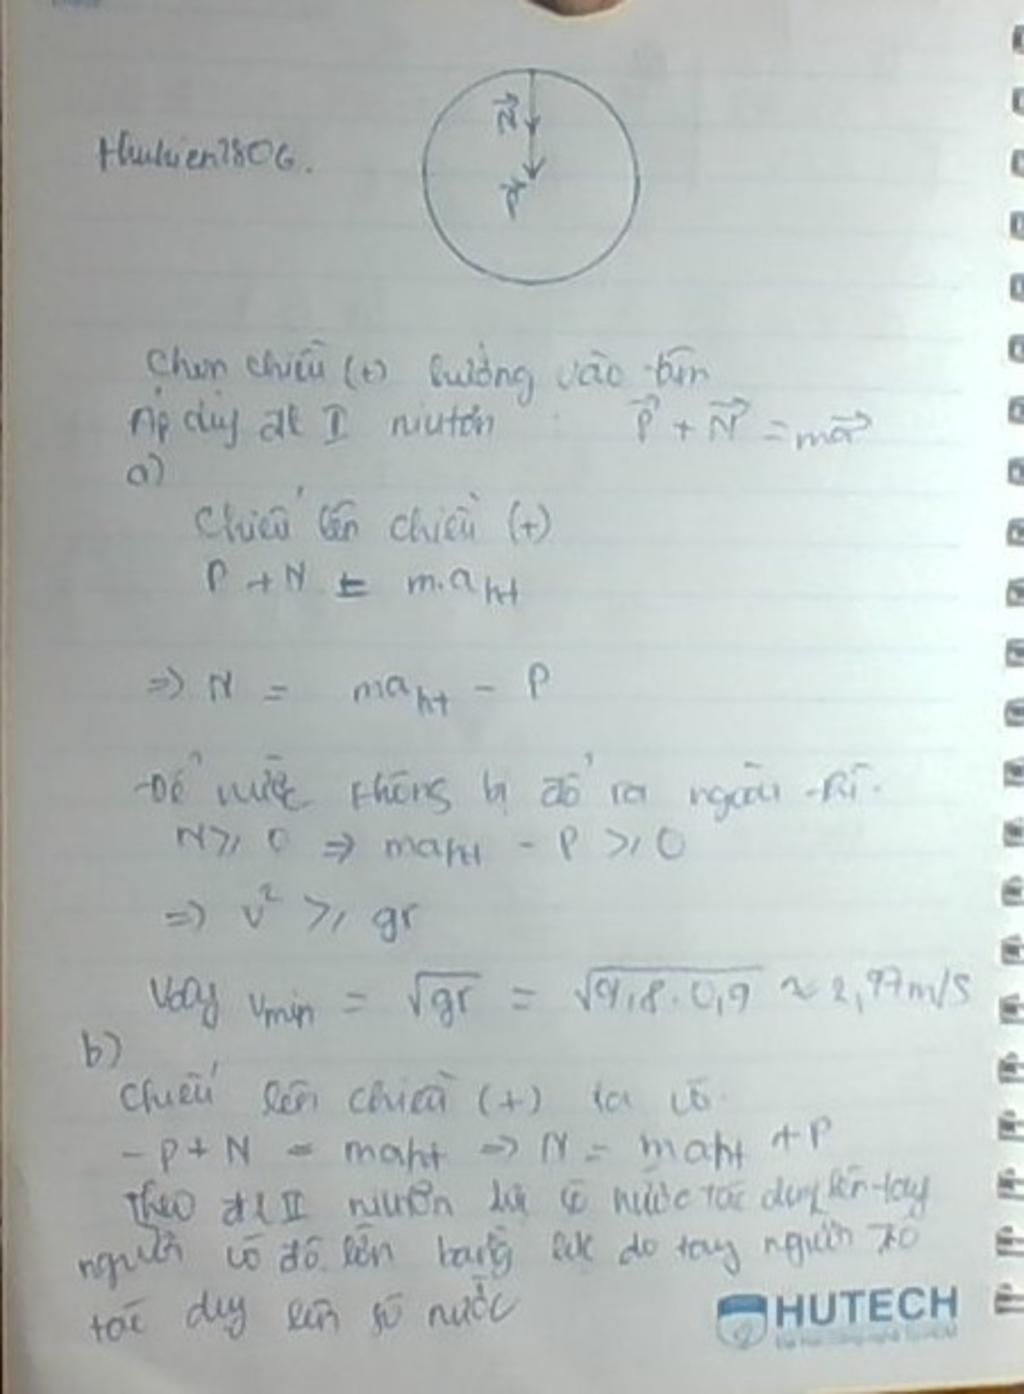 Thuhien7806.
N
P
Chọn chiều (+) hướng vào tâm
Áp dụng đl II niutơn : P + N = ma
a)
Chiếu lên chiều (+)
P + N = m.aht
=> N = maht - P
-Để nước không bị đổ ra ngoài thì.
N ≥ 0 => maht - P ≥ 0
=> v² ≥ gr
Vậy vmin = √gr = √9,8.0,9 ≈ 2,97m/s
b)
Chiếu lên chiều (+) ta có
- P + N = maht => N = maht + P
Theo đl II niutơn lực xô nước tác dụng lên tay
người có độ lớn bằng lực do tay người
tác dụng lên xô nước
HUTECH